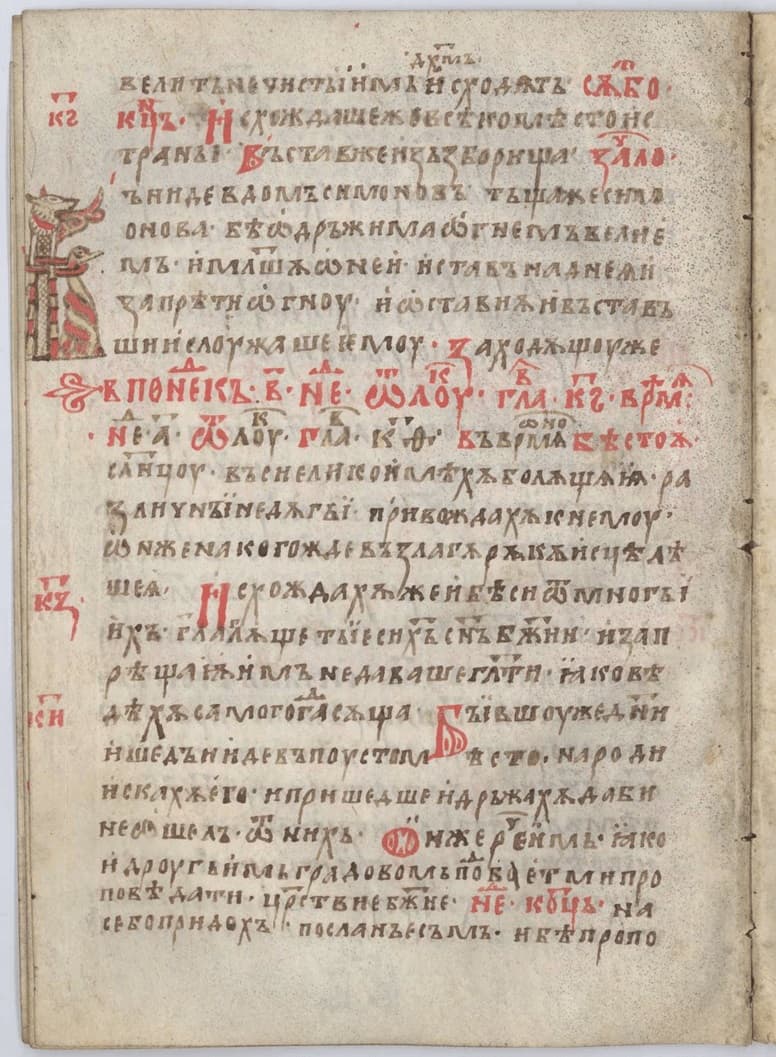 дх҃мь
велить нечистыимь исходѧть· сѫⷠ҇о·
к҃г конⷰ҇ь· Исхождашеж о всѣкомь мѣсто ис
траны· Въставже изъ зборища· заⷱ҇ло·
ъниде в домъ симоновъ· тьщажесимо
онова· бѣ ѡдръжима ѡгнемъ велие
мь· и молишѧ ѡ неи· и ставь над неѫ и
запрѣти ѡгноу· и ѡстави ѫ и въстав
ши и слоужаше емоу· Заходѧщоуже
в понеⷣ҇къ· в҃· неⷣ· ѿ лоуⷦ҇· глаⷡ҇· к҃г· врѣмѧ҇:
неⷣ· а· ѿ лоуⷦ҇· глаⷡ҇· к҃ѳ· въ врѣмѧ ѡно бѣ стоѫ·
сл҃нцоу· въси елико имѣхѫ болѧщѧѧ· ра
зличныи недѫгы· привождахѫ к немоу·
ѡнже на когождо въздлагѧ рѫкы исцѣлѣ
шеѧ· Исхождахѫ же и бѣси ѿ многы
ихъ· гл҃голѧще ты еси х҃ъ с҃нъ б҃жии· и зап
рѣщаѧ имъ не даваше гл҃ти· ꙗко вѣ
к҃и дѣхѫ самого г҃а сѫща· Бывшоуже д҃ни
ишедъ и иде въ поусто мѣсто· народи
искахѫ его· и пришедше и дръжахѫ да би
не ѿшелъ· ѿ нихъ· Ѻнже реⷱ҇ имь· ꙗко
и дроугыимь градовомъ подобаетми про
повѣдати· цр҃ствие б҃жие· неⷣ· конⷰ҇ъ· на
се бо придохъ· посланъ есъмь· и бѣ пропо